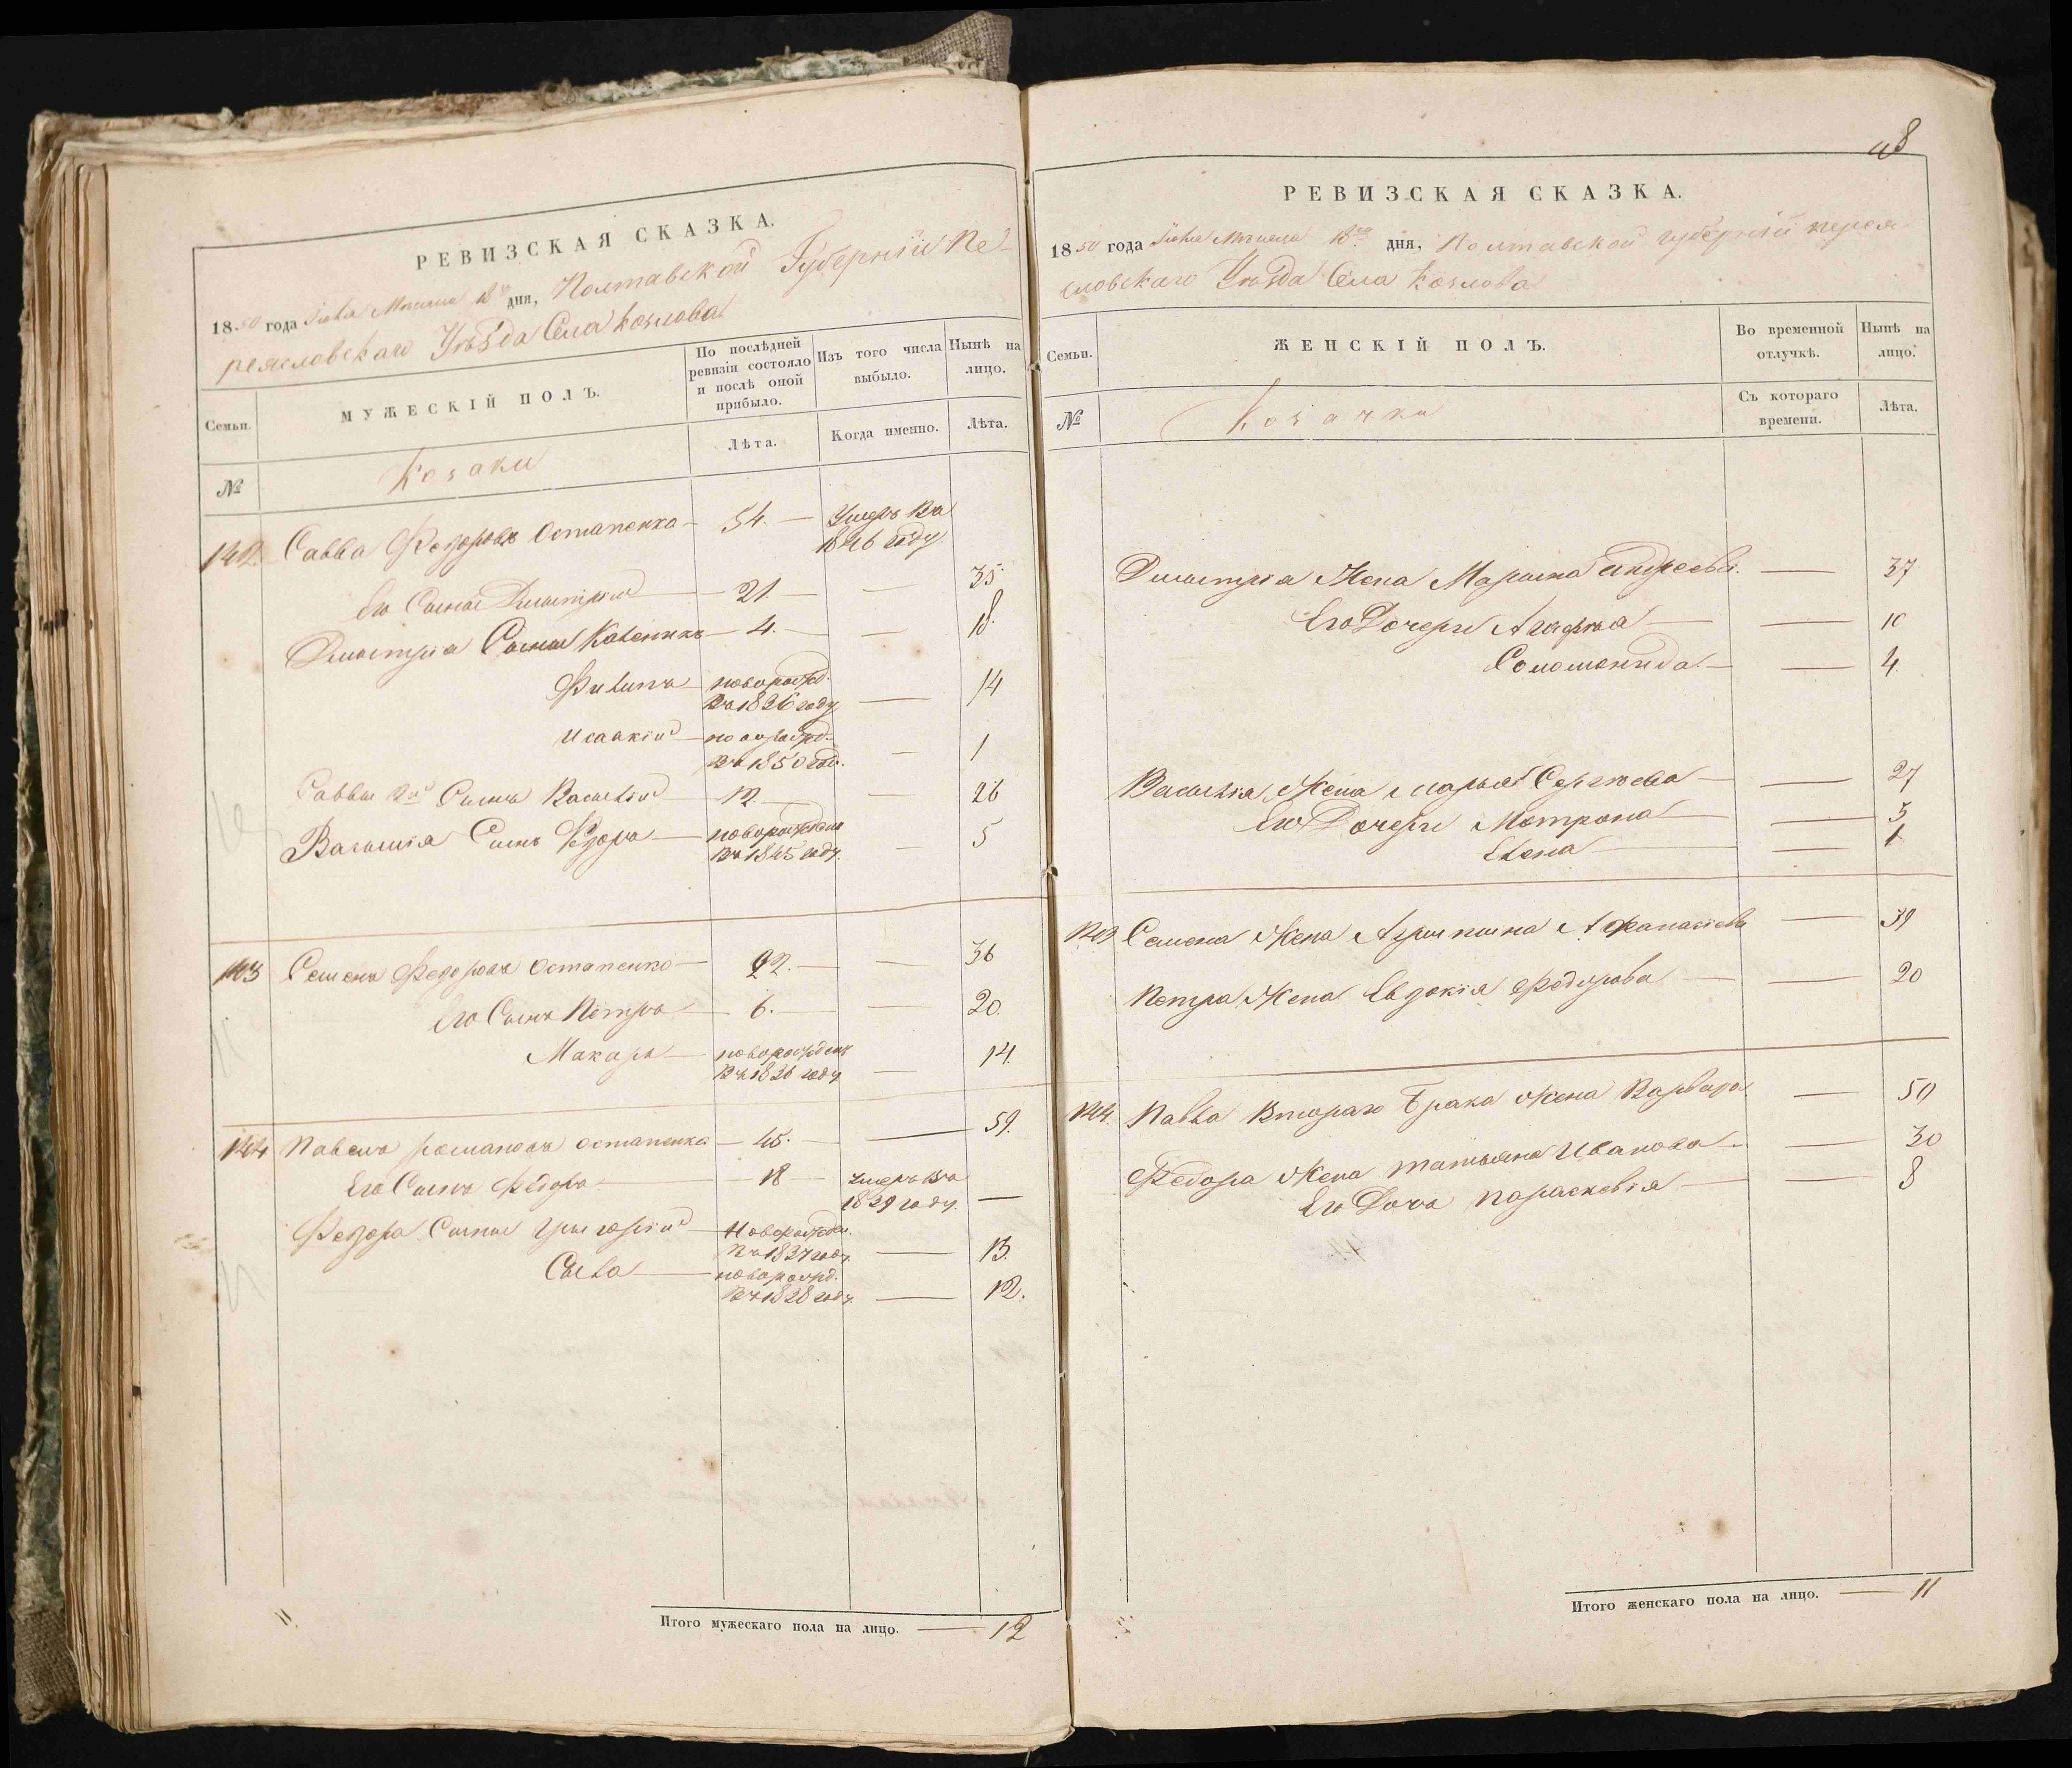 РЕВИЗСКАЯ СКАЗКА.
1850 года Іюля Месяца 18го дня, Полтавской Губерніи Пе-
реясловскаго Уѣзда Села Козлова
Семьи.
МУЖЕСКІЙ ПОЛЪ.
По послѣдней ревизіи состояло и послѣ оной прибыло.
Изъ того числа выбыло.
Нынѣ на лицо.
Лѣта.
Когда именно.
Лѣта.
№
Козаки
142 Савва Федоровъ Остапенко — 54. — Умеръ Въ
1846 году.
Его Сыны Дмитрій — 21 — — 35.
Дмитрія Сыны — 4. — — 18.
Филипъ — новорожд. — 14
Въ 1836 году
Исаакій — новорожд. — 1
Въ 1850 год.
Саввы 2й Сынъ Василій — 12. — — 26
Василія Сынъ Федоръ — новорожденъ — 5
Въ 1845 году.
143 Семенъ Федоровъ Остапенко — 22. — — 36
Его Сынъ Петръ — 6. — — 20.
Макаръ — новорожденъ — 14.
Въ 1836 году
144 Павелъ Романовъ Остапенко — 45. — — 59.
Его Сынъ Федоръ — 18 — Умеръ Въ —
1839 году.
Федора Сыны Григорій — Новорожден. — 13.
Въ 1837 году.
Сава — новорожд. — 12.
Въ 1838 году.
Итого мужескаго пола на лицо. — 12
48
РЕВИЗСКАЯ СКАЗКА.
1850 года Іюля Месяца 18го дня, Полтавской губерніи перея-
словскаго Уѣзда Села Козлова
Семьи.
ЖЕНСКІЙ ПОЛЪ.
Во временной отлучкѣ.
Нынѣ на лицо.
№
Козачки
Съ котораго времени.
Лѣта.
Дмитрія Жена Марина Андреева — — 37
Его Дочери Агафія — — 10
Соломонида — — 4.
Василія Жена Марья Сергѣева — — 27
Его Дочери Мотрона — — 3
Елена — — 1
143 Семена Жена Агрипина Афанасіева — 39
Петра Жена Евдокія Федорова — — 20
144. Павла Втораго Брака Жена Варвара — 50
Федора Жена Татьяна Иванова — — 30
Его Дочь Параскевія — — 8
Итого женскаго пола на лицо. — 11